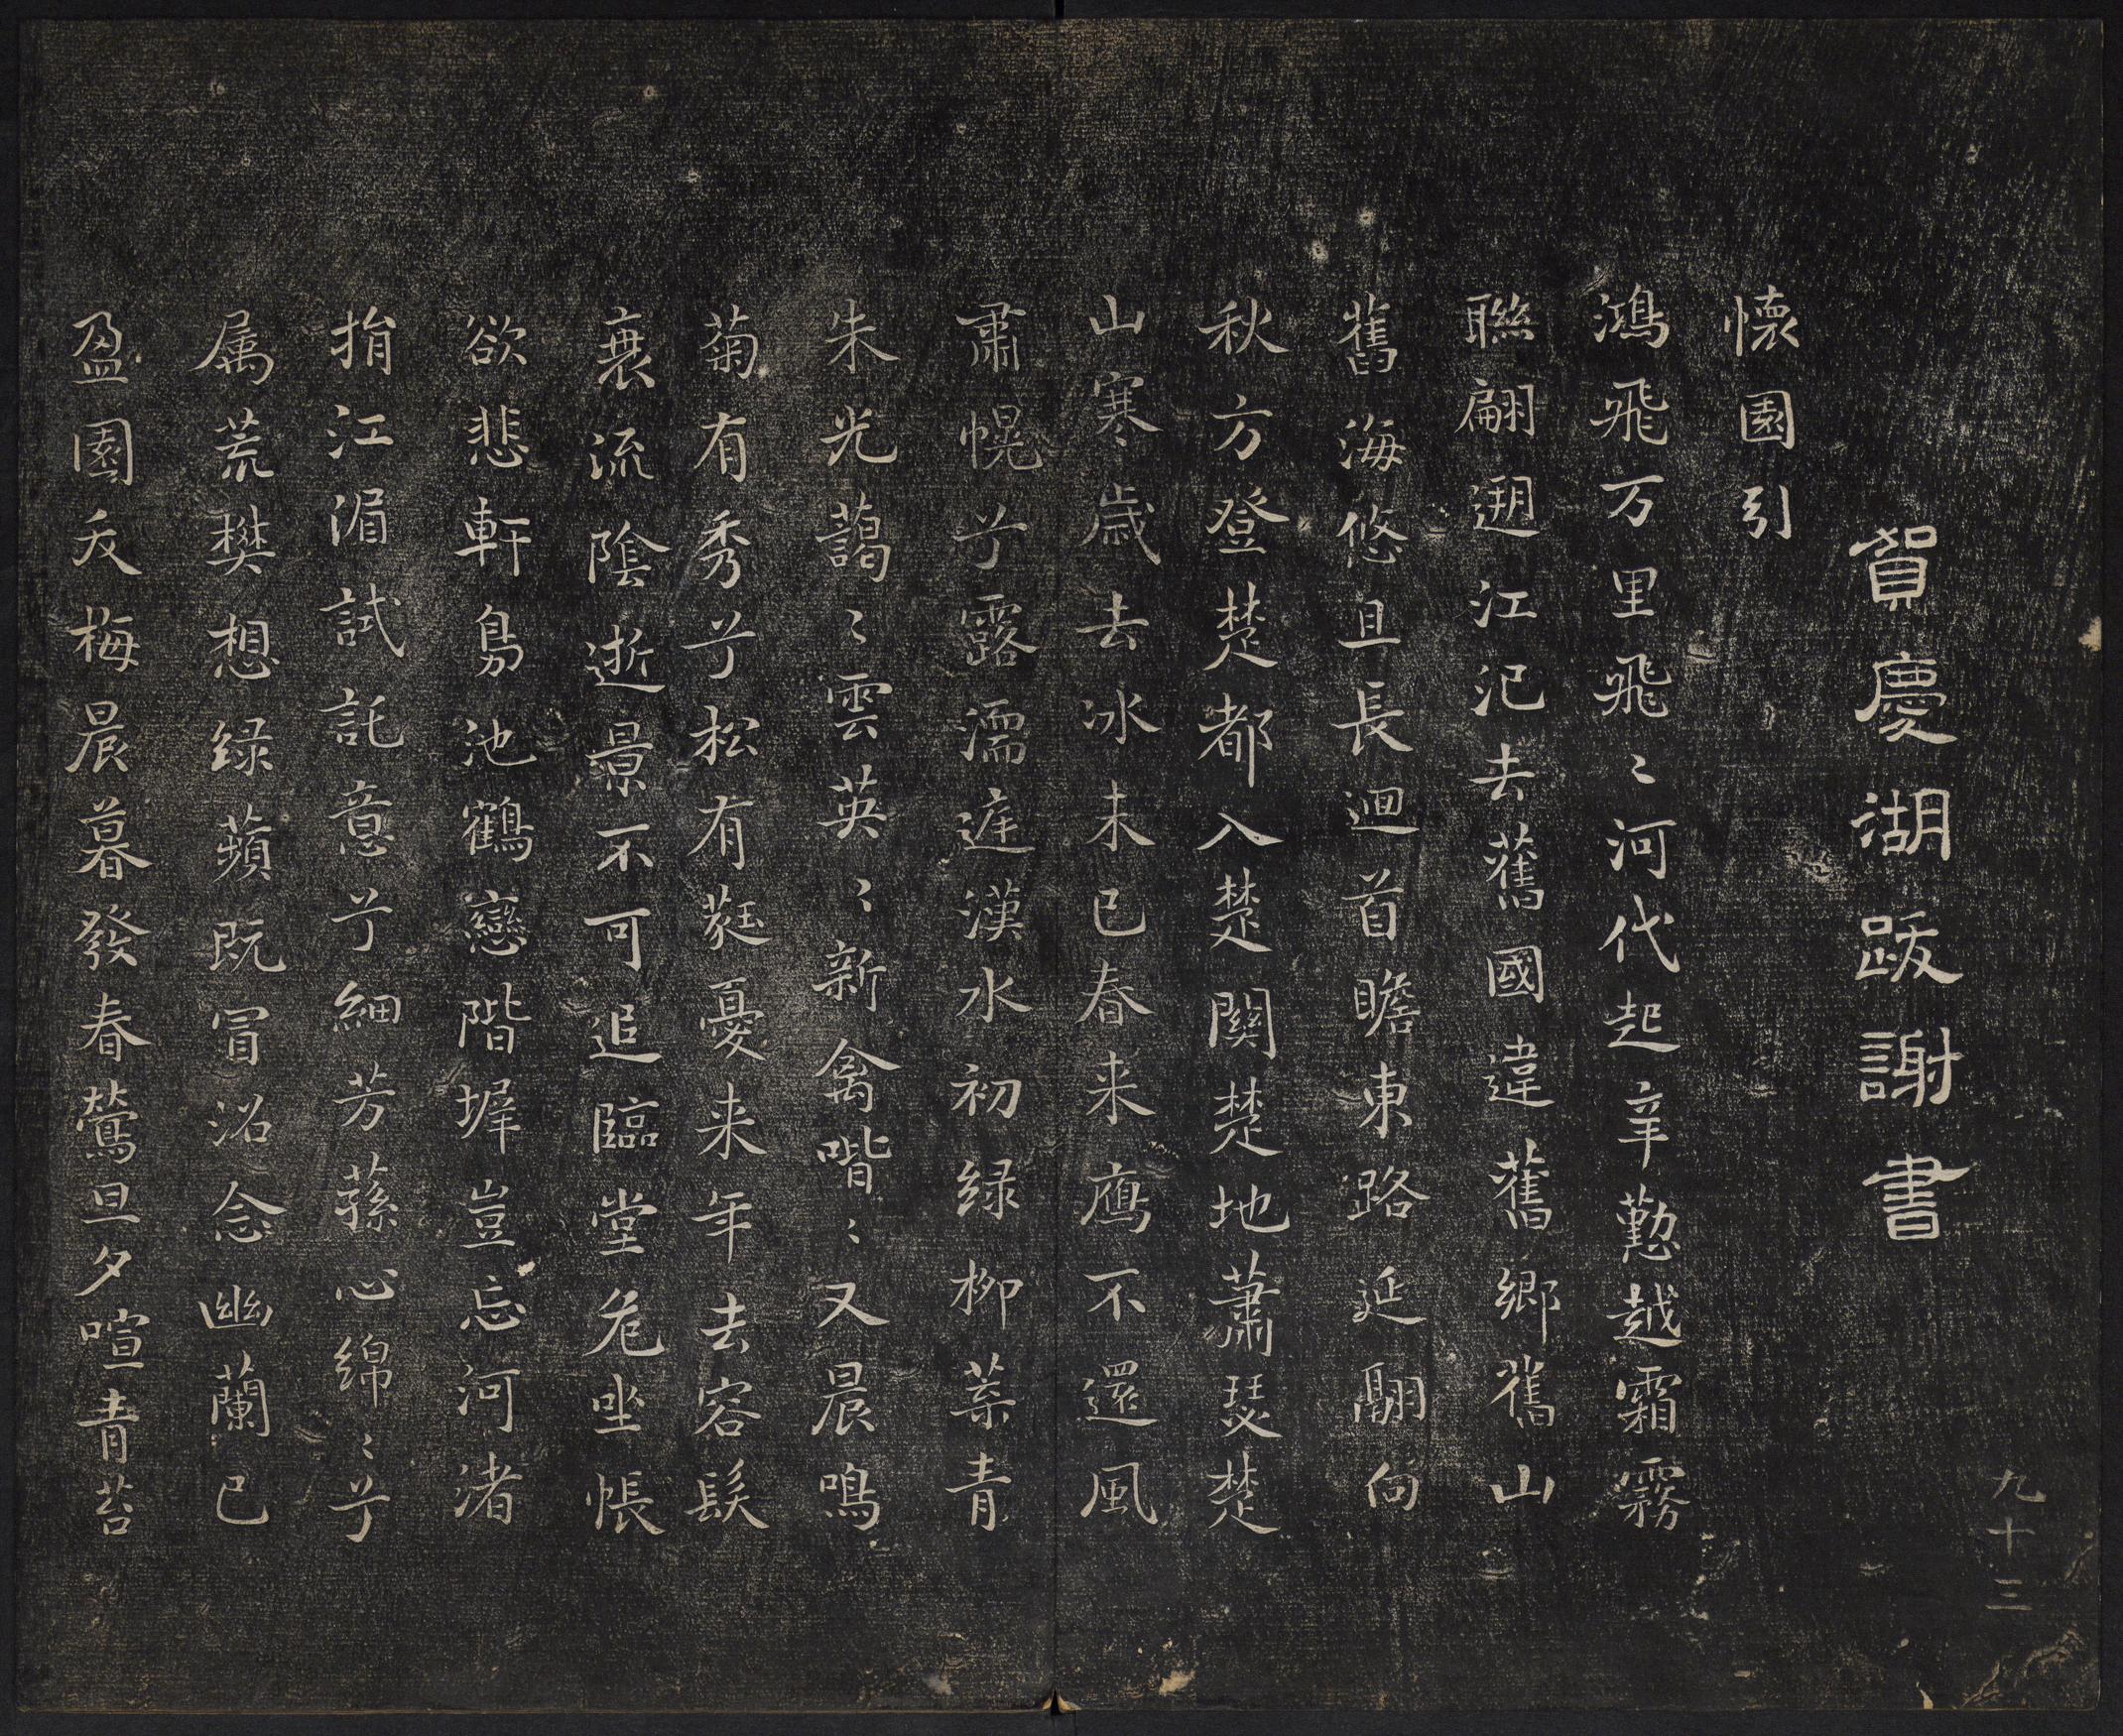 九十三
賀慶湖跋謝書
懷園引
鴻飛万里飛〻河代起辛懃越霜霧
聯翩遡江汜去舊國違舊鄉舊山
舊海悠且長迴首瞻東路延翮向
秋方登楚都入楚關楚地蕭瑟楚
山寒歲去冰未已春来鴈不還風
肅幌兮露濡庭漢水初绿柳葉青
朱光藹〻雲英〻新禽喈〻又晨鳴
菊有秀兮松有蕤憂来年去容髮
衰流陰逝景不可追臨堂危坐悵
欲悲軒鳬池鶴戀階墀豈忘河渚
捐江湄試託意兮细芳蓀心綿〻兮
属荒樊想绿蘋既冒沼念幽蘭已
盈園夭梅晨暮發春鶯旦夕喧青苔